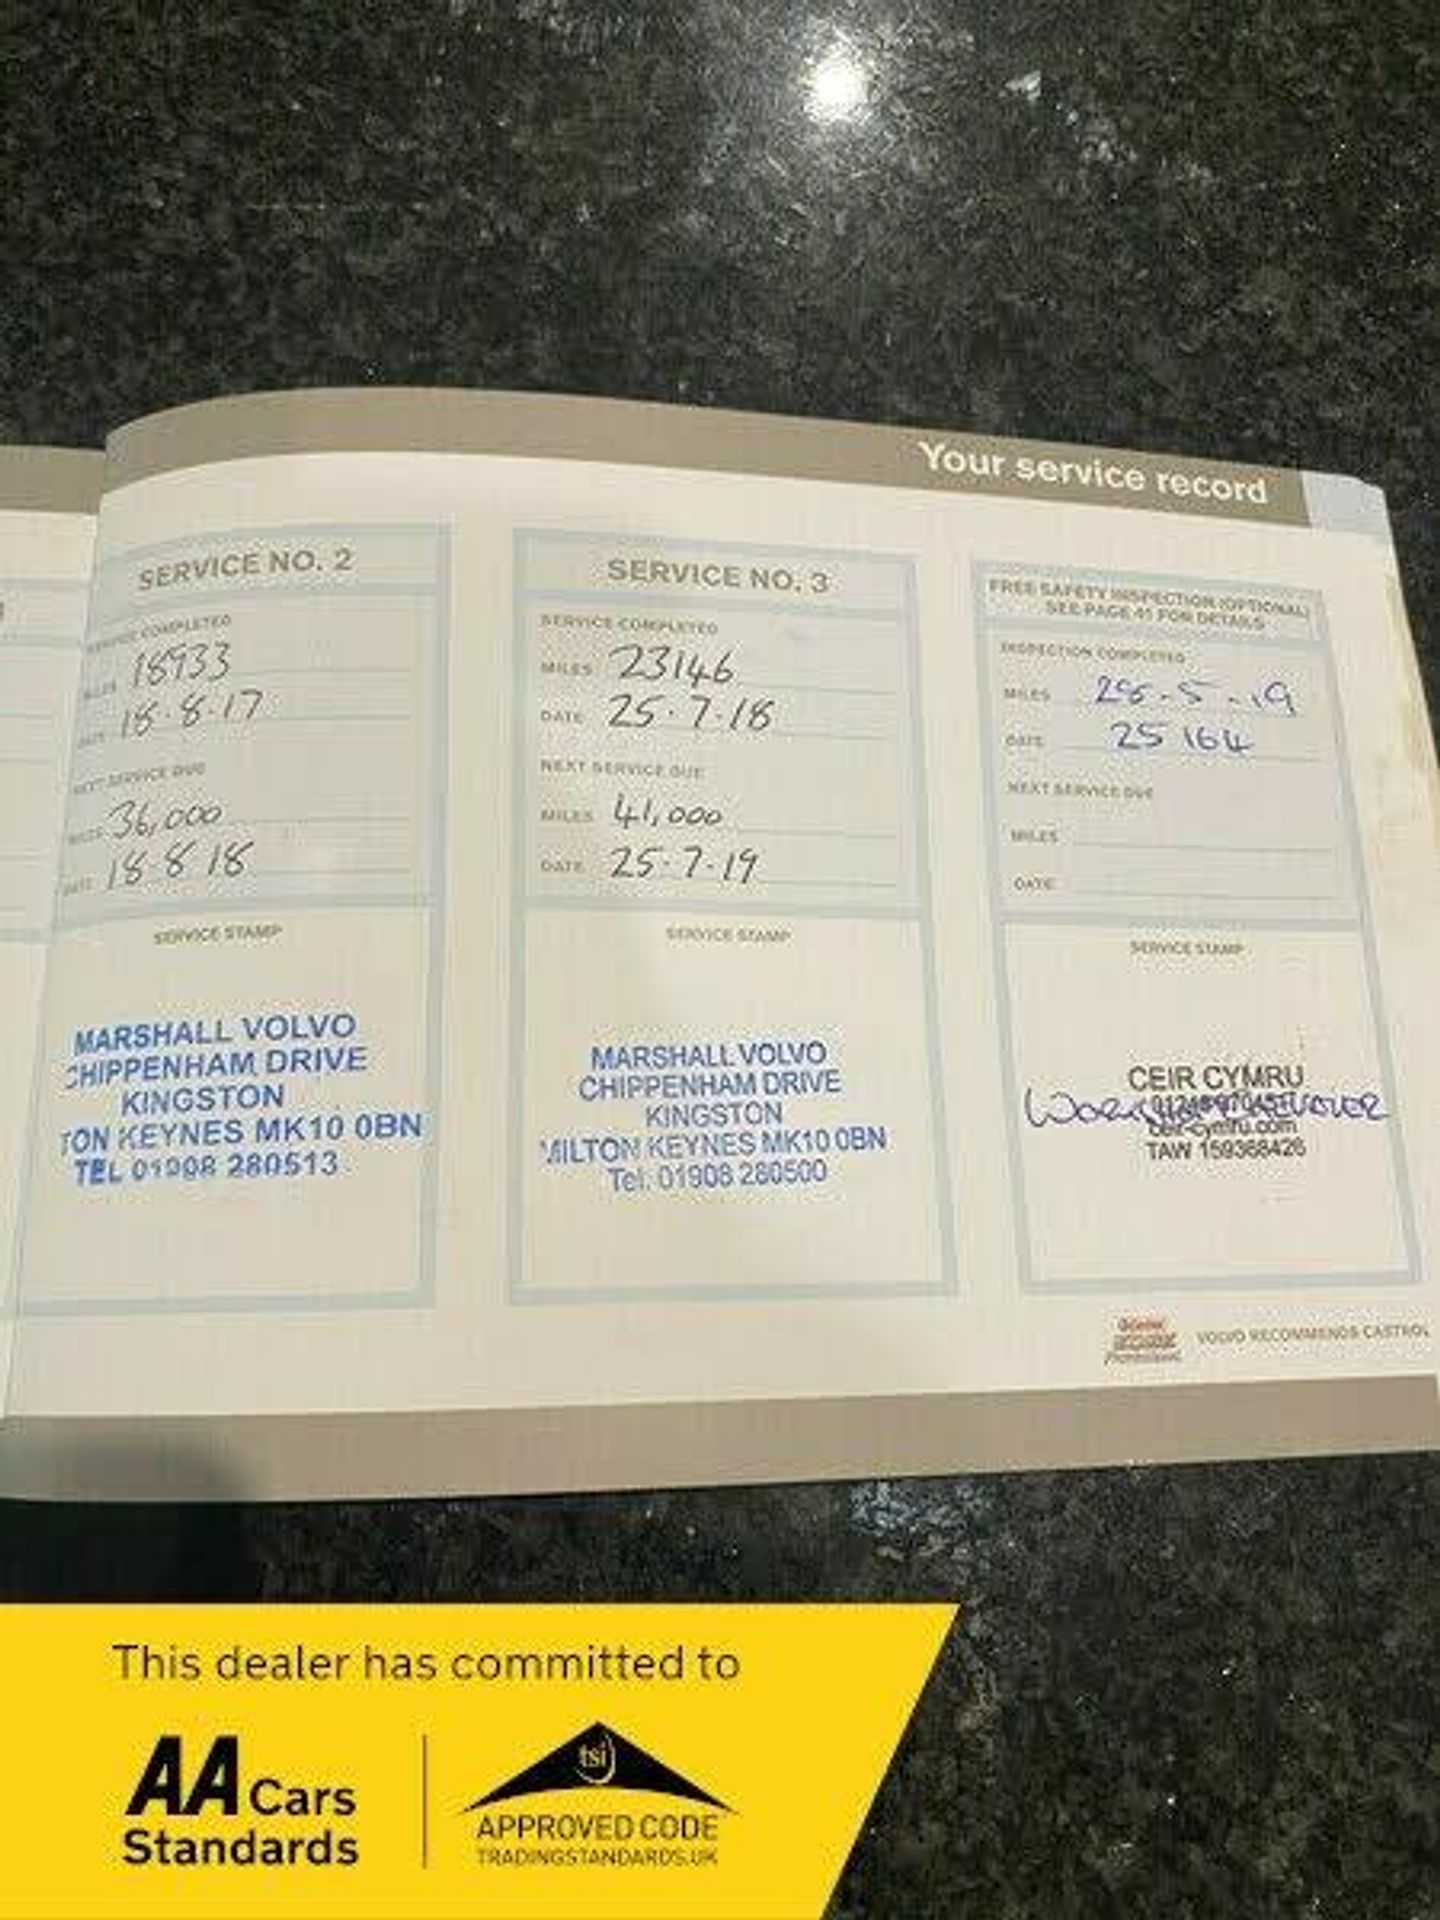 Your service record
SERVICE NO. 2
SERVICE COMPLETED
MILES 18933
DATE 18·8·17
NEXT SERVICE DUE
MILES 36,000
DATE 18·8 18
SERVICE STAMP
MARSHALL VOLVO
CHIPPENHAM DRIVE
KINGSTON
TON KEYNES MK10 0BN
TEL 01908 280513
SERVICE NO. 3
SERVICE COMPLETED
MILES 23146
DATE 25·7·18
NEXT SERVICE DUE
MILES 41,000
DATE 25·7·19
SERVICE STAMP
MARSHALL VOLVO
CHIPPENHAM DRIVE
KINGSTON
MILTON KEYNES MK10 0BN
Tel: 01908 280500
FREE SAFETY INSPECTION (OPTIONAL)
SEE PAGE 41 FOR DETAILS
INSPECTION COMPLETED
MILES
DATE 25164
NEXT SERVICE DUE
MILES
DATE
SERVICE STAMP
CEIR CYMRU
ceir-cymru.com
TAW 159368426
VOLVO RECOMMENDS CASTROL
This dealer has committed to
AA Cars
Standards
tsi
APPROVED CODE
TRADINGSTANDARDS.UK